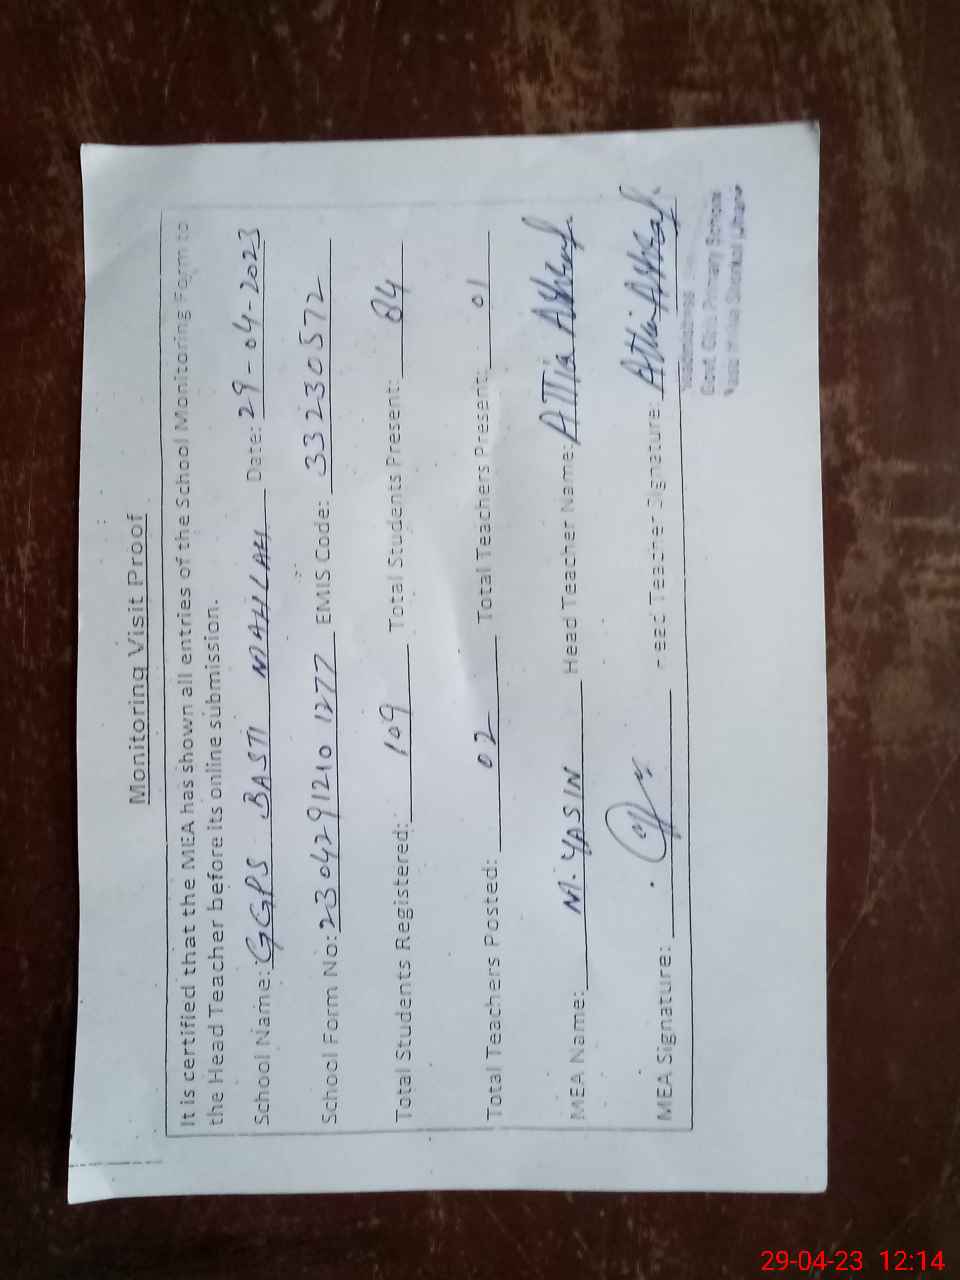 Monitoring Visit Proof
It is certified that the MEA has shown all entries of the School Monitoring Form to
the Head Teacher before its online submission.
School Name: GGPS BASTI MAHLAH Date: 29-04-2023
School Form No: 23042912101277 EMIS Code: 33230572
Total Students Registered: 109 Total Students Present: 84
Total Teachers Posted: 02 Total Teachers Present: 01
MEA Name: M. YASIN Head Teacher Name: ATTia AShraf
MEA Signature: Head Teacher Signature: Attia AShraf
Headmistress
Govt. Girls Primary School
29-04-23 12:14